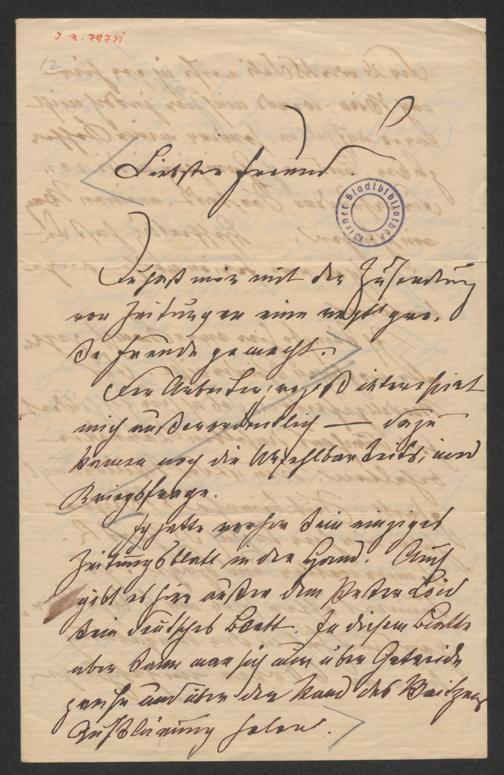 I. N. 79731
12
Liebster Freund.
Wiener Stadtbibliothek
Du hast mir mit der Zusendung
von Zeitungen eine recht gro-
ße Freude gemacht.
Der Arbeiterprozeß interessirt
mich außerordentlich — dazu
kamen noch die Unfehlbarkeits- und
Kriegsfrage.
Ich hatte vorher kein einziges
Zeitungsblatt in der Hand. Auch
gibt es hier außer dem Pester Loid
kein deutsches Blatt. In diesem Blatte
aber kann man sich nur über Getreide
preise und über den Stand des Weitzens
Aufklärung holen.